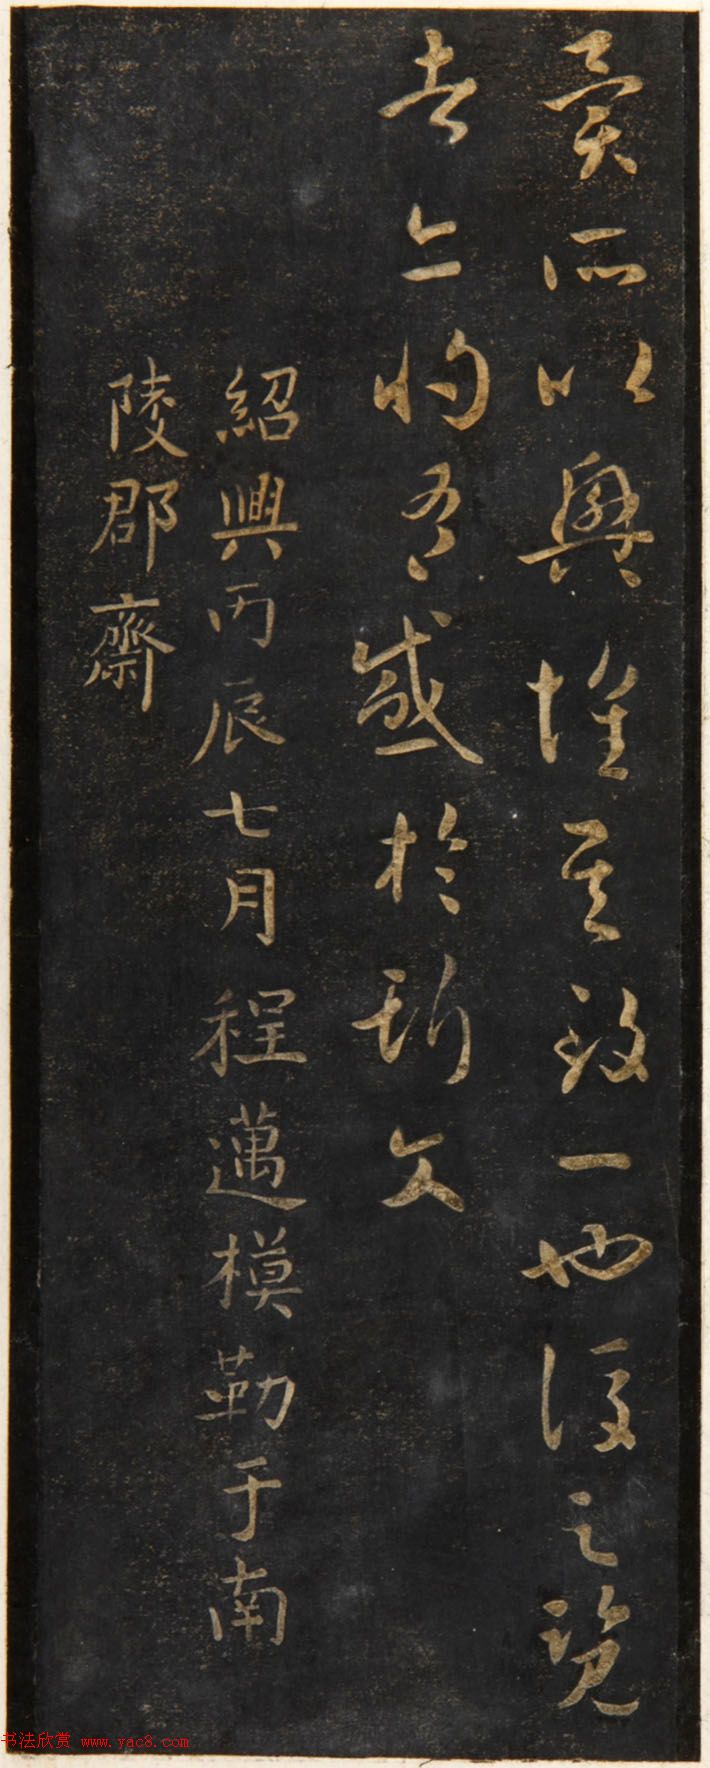 異所以興懷其致一也後之覽
者亦將有感於斯文
紹興丙辰七月程邁模勒于南
陵郡齋
书法欣赏 www.yac8.com